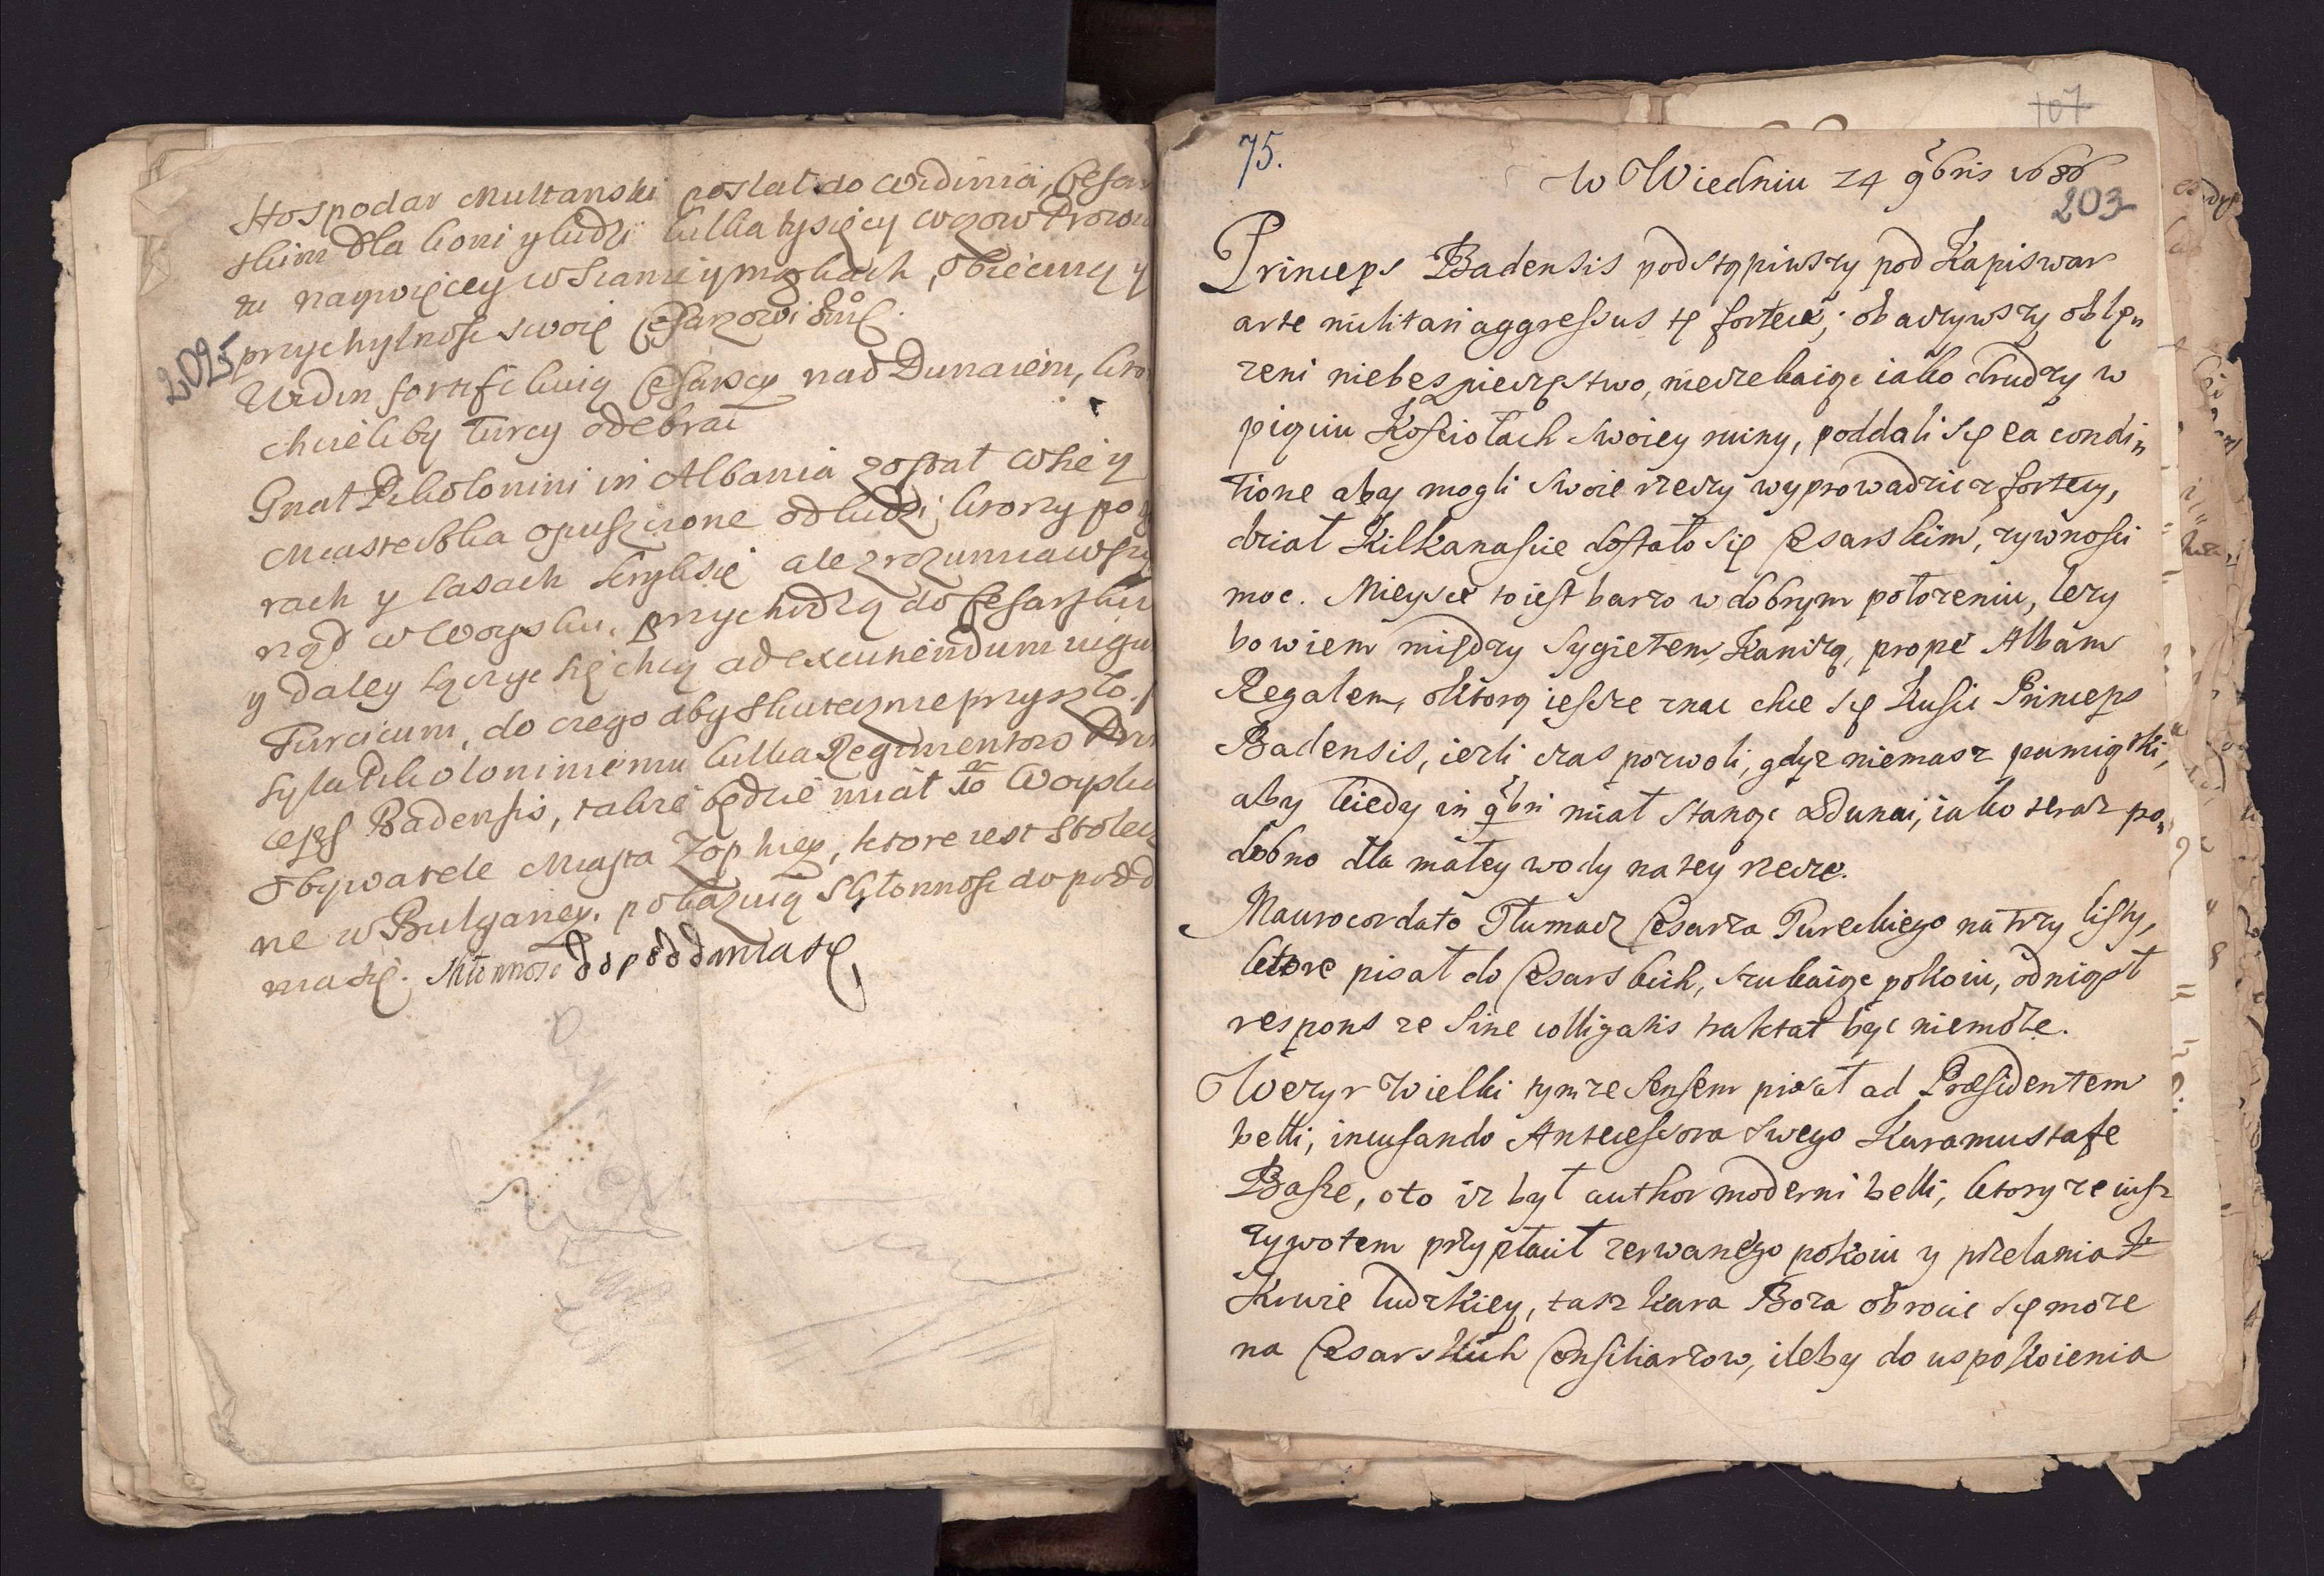 Hospodar Multanski posłał do Widinia, Cesar
skim dla koni y ludzi kilka tysięcy wozow Prowi
tu naywięcey w sianie y mąkach, obiecuiący
przychylnosc swoię Cesarzowi Jmsc.
2025
Widin fortifikuią Cesarscy nad Dunaiem, kto
chcieliby Turcy odebrac
Gnał Pikolomini in Albania został wsie y
Miasteczka opuszczone od ludzi, ktorzy po
rach y lasach kryli się ale zrozumiawszy
rząd w Woysku, przychodzą do Cesarskic
y daley łączyc się chcą ad excutiendum iugu
Turcicum, do czego aby skutecznie przyszło.
syła Pikolominiemu kilka Regimentow Prin
ceps Badensis, także będzie miał 10 Woyska
Obywatele Miasta Zophiey, ktore iest stolecz
ne w Bulgariey, pokazuią skłonnosc do podd
nia się. skłonnosc do poddania się
107
75.
W Wiedniu 24 9bris 1686
203
Princeps Badensis podstąpiwszy pod Kapiswar
arte militari aggressus tę fortecę; obaczywszy oblę„
zeni niebespieczęstwo, nieczekaiąc iako drudzy w
pięciu Kosciołach swoiey ruiny, poddali się ea condi„
tione aby mogli swoie rzeczy wyprowadzic z fortecy,
dział Kilkanascie dostało się Cesarskim, zywnosci
moc. Mieysce to iest barzo w dobrym położeniu, lezy
bowiem między Sygietem, Kanizą, prope Albam
Regalem, o ktorą ieszcze znac chce się kusic Princeps
Badensis, iezli czas pozwoli, gdyz niemasz pamiątki,
aby kiedy in 9bri miał stanąc Dunai, iako teraz po„
dobno dla małey wody na tey rzece.
Maurocordato Tłumacz Cesarza Tureckiego na trzy listy,
ktore pisał do Cesarskich, szukaiąc pokoiu, odniosł
respons ze sine colligatis traktat byc niemoze.
Wezyr Wielki tymze sensem pisał ad Præsidentem
belli, incusando Antecessora swego Karamustafe
Basze, o to iz był author moderni belli, ktory ze iusz
zywotem przypłacił zerwanego pokoiu y przelania
Krwie ludzkiey, tasz kara Boza obrocic się moze
na Cesarskich Consiliarzow, ileby do uspokoienia